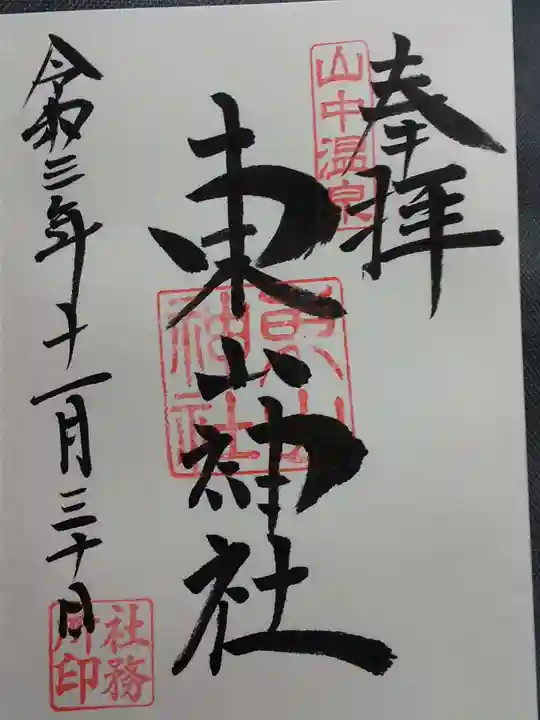 奉拝
山中温泉
東山神社
東山神社
令和三年十一月三十日
社務所印